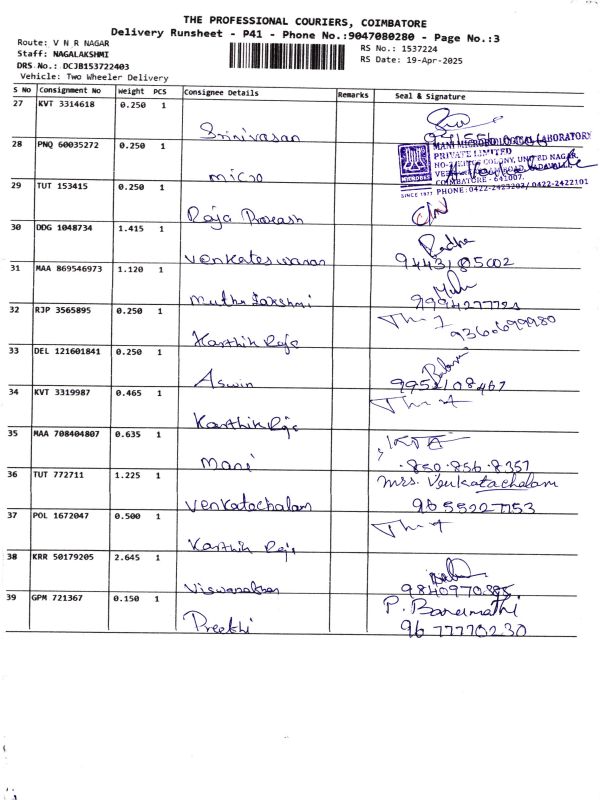 THE PROFESSIONAL COURIERS, COIMBATORE
Delivery Runsheet - P41 - Phone No.:9047080280 - Page No.:3
Route: V N R NAGAR
RS No.: 1537224
Staff: NAGALAKSHMI
RS Date: 19-Apr-2025
DRS No.: DCJB153722403
Vehicle: Two Wheeler Delivery
S No Consignment No Weight PCS Consignee Details Remarks Seal & Signature
27 KVT 3314618 0.250 1
Srinivasan
28 PNQ 60035272 0.250 1
MANI MICROBIOLOGICAL LABORATORY
PRIVATE LIMITED
COLONY, UNITED NAGAR,
COIMBATORE - 641007.
MICROBES
SINCE 1977 PHONE: 0422-2423202/ 0422-2422101
micro
29 TUT 153415 0.250 1
Raja Prakash
30 DDG 1048734 1.415 1
Radha
Venkateswaran 9443185002
31 MAA 869546973 1.120 1
Muthu Lakshmi
32 RJP 3565895 0.250 1
Karthik Raja
33 DEL 121601841 0.250 1
Aswin 9952108467
34 KVT 3319987 0.465 1
Karthik Raja
35 MAA 708404807 0.635 1
Mani 850.856.8357
36 TUT 772711 1.225 1
Mrs. Venkatachalam
Venkatachalam 9655227153
37 POL 1672047 0.500 1
Karthik Raja
38 KRR 50179205 2.645 1
Viswanathan
39 GPM 721367 0.150 1
P. Banumathi
Preethi 9677770230